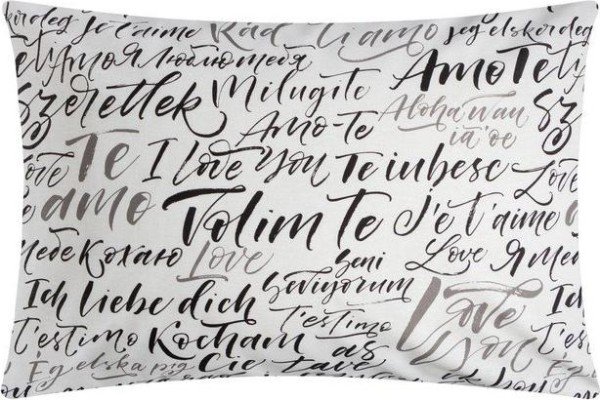 jeg elsker deg je t'aime Rád Ti amo jeg elsker deg
Te amo я люблю тебя Amo Te
Szeretlek Milujite
Amo-te Aloha wau
ia 'oe
Te amo I love you Te iubesc Love
Volim te Je t'aime
Кохаю Love Seni Love Я
Ich liebe dich Seviyorum Love you
T'estimo Kocham T'estimo
Ég elska þig Cię as